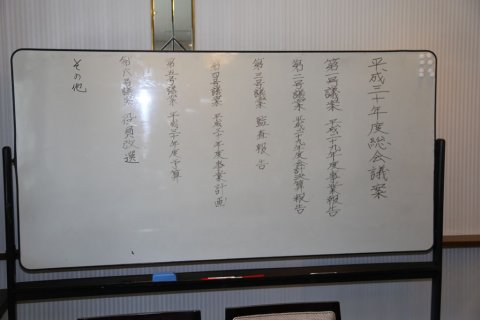 平成三十年度総会議案
第一号議案 平成二十九年度事業報告
第二号議案 平成二十九年度会計決算報告
第三号議案 監査報告
第四号議案 平成三十年度事業計画
第五号議案 平成三十年度予算
第六号議案 役員改選
その他